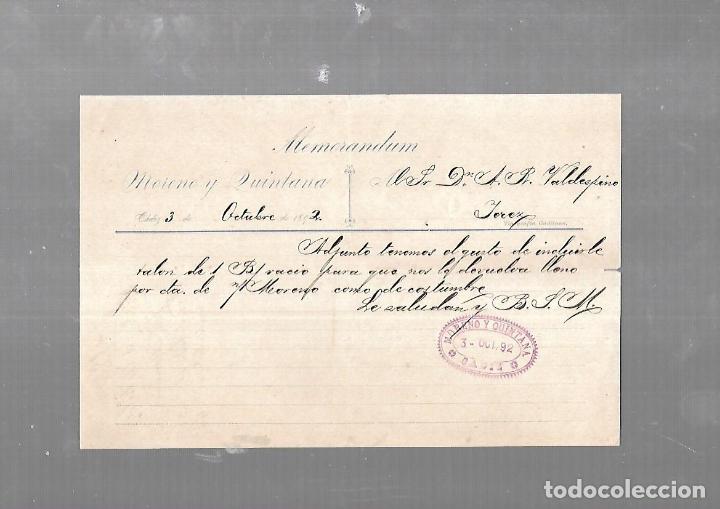 Memorandum
Moreno y Quintana
Al Sr. Dn. A. R. Valdespino
Cádiz 3 de Octubre de 1892.
Jerez
Tipografía Gaditana.
Adjunto tenemos el gusto de incluirle
talon de 1 B/ vacio para que nos lo devuelva lleno
por cta. de Moreno como de costumbre
Le saludan y B. S. M.
MORENO Y QUINTANA
3 - OCT. 92
CADIZ
todocoleccion.net